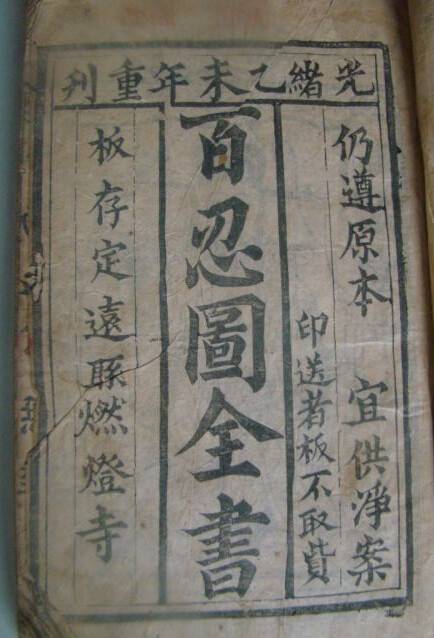 光緒乙未年重刊
仍遵原本 宜供净案
印送者板不取貲
百忍圖全書
板存定遠縣燃燈寺